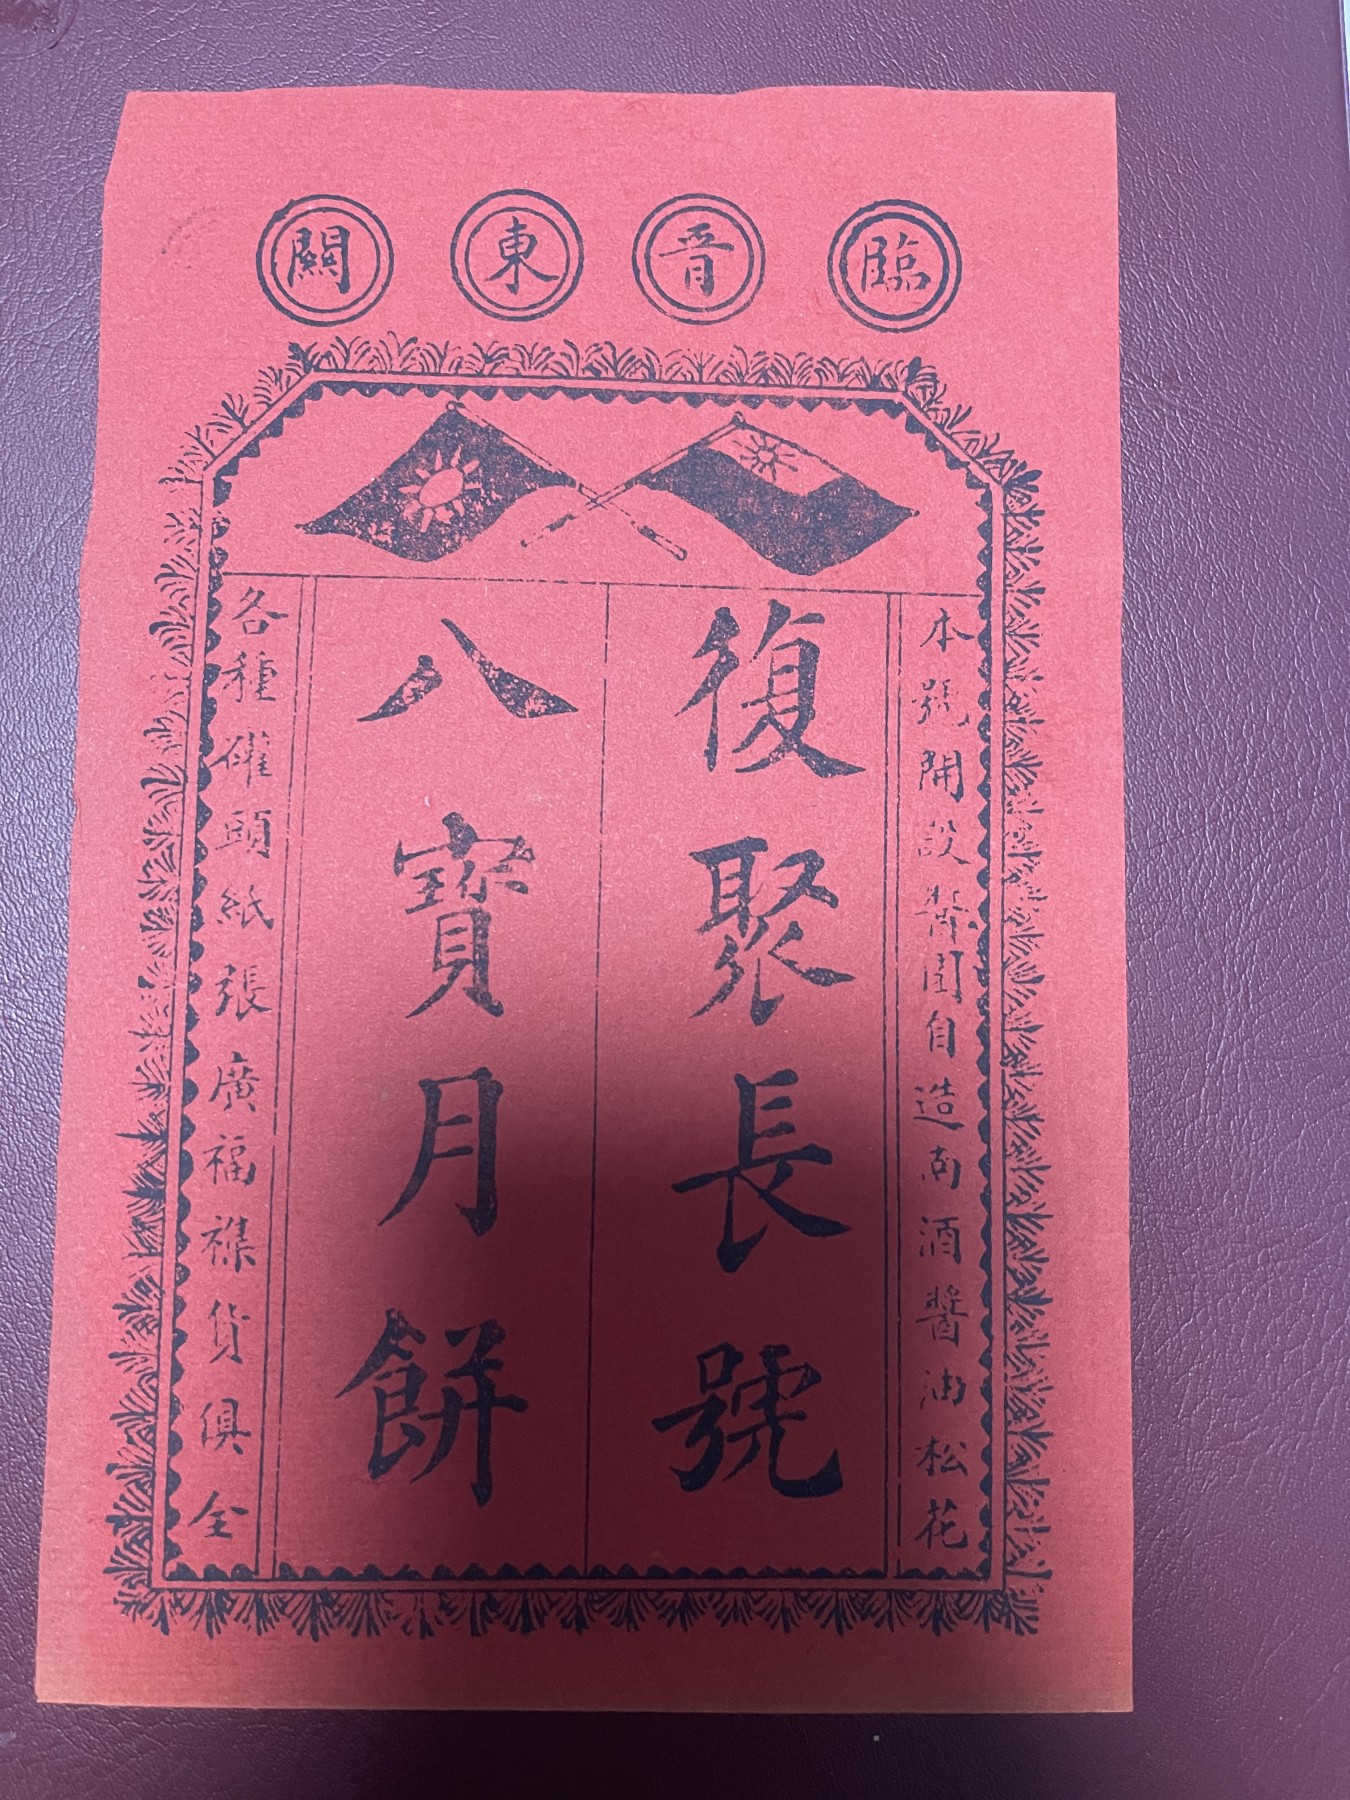 臨晉東關
本號開設園自造南酒醬油松花
復聚長號
八寶月餅
各種頭紙張廣福襍貨俱全